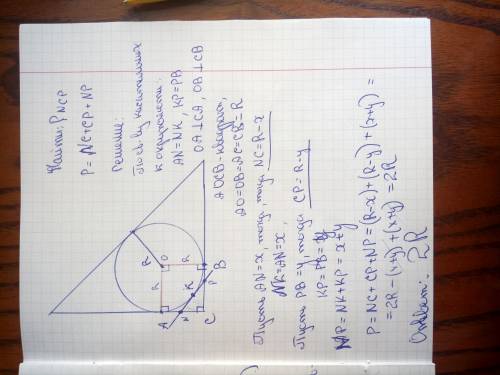 Найти: P NCP
P = NC+CP+NP
Решение:
По св-ву касательных
к окружности:
AN=NK, KP=PB
OA⊥CA, OB⊥CB
AOCB-квадрат,
AO=OB=AC=CB=R
Пусть AN=x, тогда, NC=R-x
NK=AN=x,
Пусть PB=y, тогда CP=R-y
KP=PB=y
NP=NK+KP=x+y
P=NC+CP+NP=(R-x)+(R-y)+(x+y)=
=2R-(x+y)+(x+y)=2R
Ответ: 2R
R
O
R
R
A
N
K
C
P
B